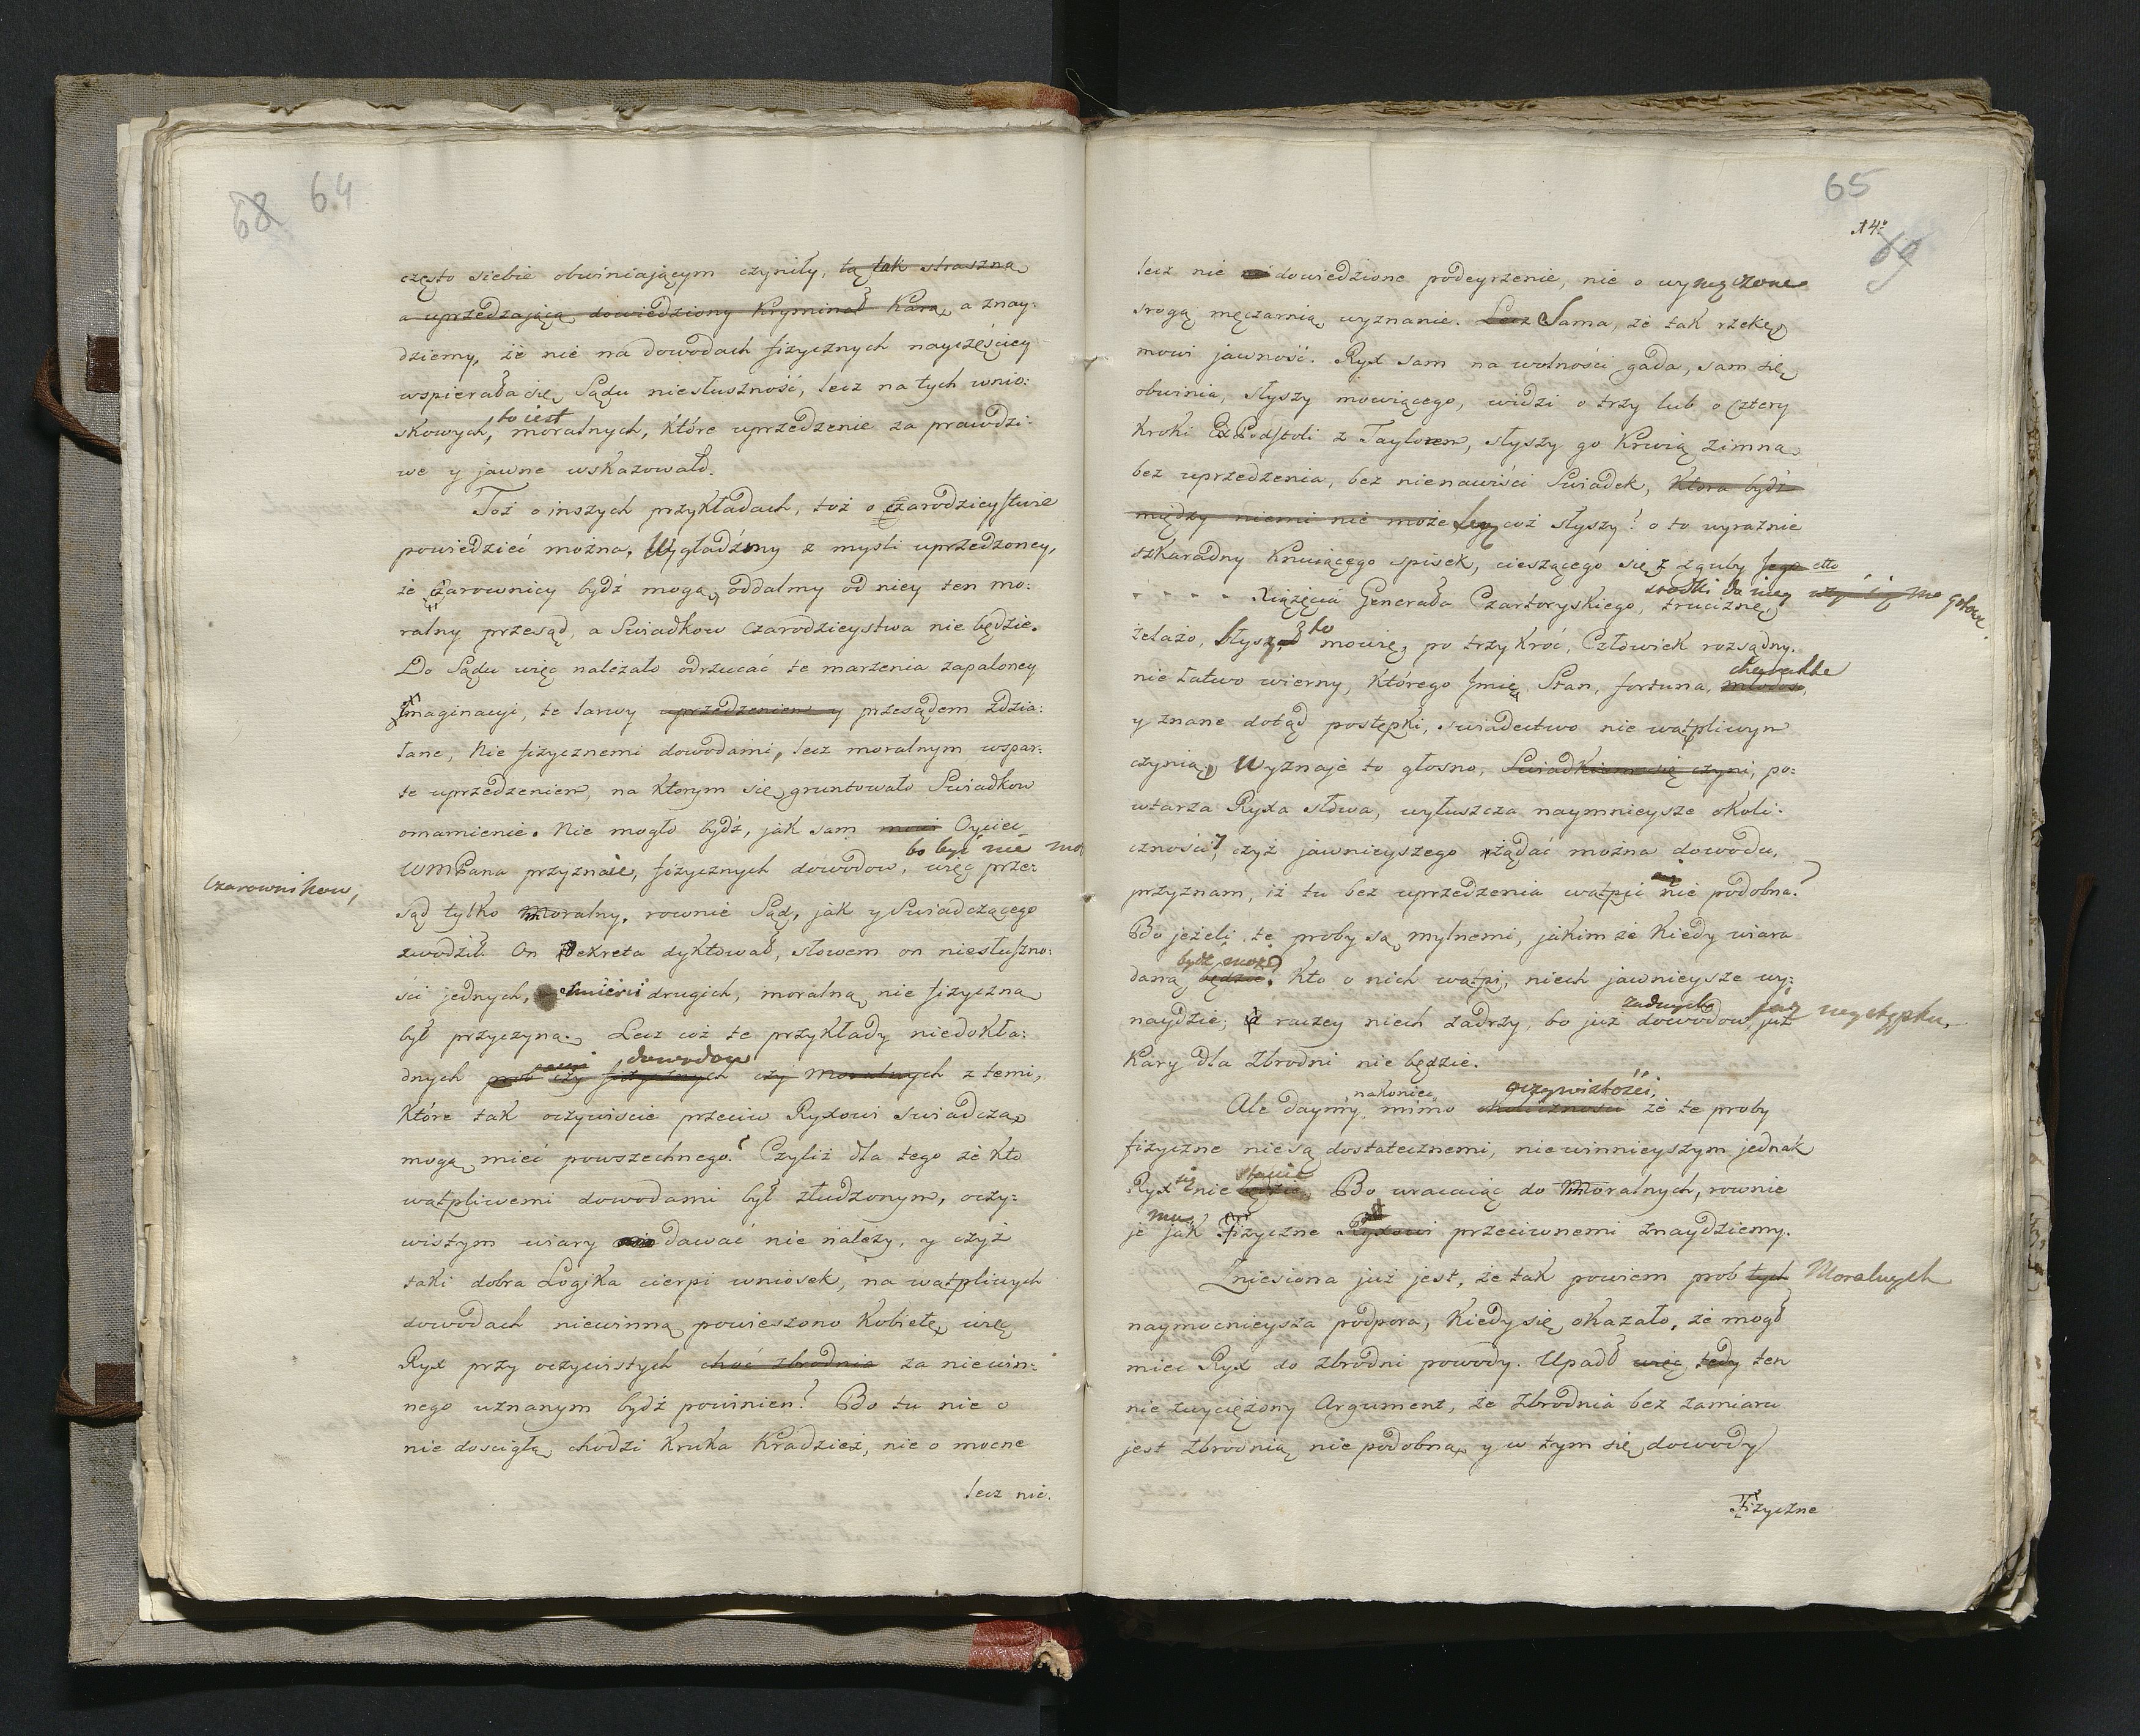 68 64
często siebie obwiniającym czyniły, tą tak straszną
a uprzedzającą dowiedziony Kryminał Karą, a znay:
dziemy, że nie na dowodach fizycznych nayczęściey
wspierała się Sądu niesłuszność, lecz na tych wnio:
to iest
skowych, moralnych, które uprzedzenie za prawdzi:
we y jawne wskazowało.
Toż o inszych przykładach, toż o czarodzieystwie
powiedzieć można. Wygładźmy z myśli uprzedzoney,
że czarownicy bydź mogą, oddalmy od niey ten mo:
ralny przesąd, a Swiadkow czarodzieystwa nie będzie.
Do Sądu więc należało odrzucać te marzenia zapaloney
Imaginacyi, te larwy uprzedzeniem y przesądem zdzia:
łane, Nie fizycznemi dowodami, lecz moralnym wspar:
te uprzedzeniem, na ktorym się gruntowało Swiadkow
omamienie. Nie mogło bydź, jak sam Oyciec
bo być nie mo
WMPana przyznaie, fizycznych dowodow, więc prze:
Czarownikow,
sąd tylko Moralny, rownie Sąd, jak y Swiadczącego
zwodził. On Dekreta dyktował, słowem on niesłuszno:
ści jednych, śmierci drugich, moralną nie fizyczną
był przyczyną. Lecz coż te przykłady niedokła:
dowodow
dnych prob czy fizycznych czy Moralnych z temi,
które tak oczywiscie przeciw Ryxowi swiadczą,
mogą mieć powszechnego? Czyliż dla tego że kto
wątpliwemi dowodami był złudzonym, oczy:
wistym wiary dawać nie należy, y czyż
taki dobra Logjka cierpi wniosek, na wątpliwych
dowodach niewinną powieszono Kobietę, więc
Ryx przy oczywistych choć zbrodnia za niewin:
nego uznanym bydź powinien? Bo tu nie o
nie doscigłą chodzi Kruka Kradzież, nie o mocne
lecz nie.
65
14:
69
lecz nie dowiedzione podeyrzenie, nie o wymęczone
srogą męczarnią wyznanie. Lecz Sama, że tak rzekę
mowi jawność. Ryx sam na wolności gada, sam się
obwinia, słyszy mowiącego, widzi o trzy lub o cztery
Kroki Ex Podstoli z Taylorem, słyszy go Krwią zimną
bez uprzedzenia, bez nienawiści Swiadek, Ktora bydź
między niemi nie może, coż słyszy? o to wyraźnie
szkaradny Knuiącego spisek, cieszącego się z zguby Jego
srodki do niey gotow
Xiążęcia Generała Czartoryskiego, truciznę
to
żelazo, Słyszał mowię, po trzy kroć, Człowiek rozsądny.
chwalebne
nie łatwo wierny, którego Imię, Stan, fortuna, młodość,
y znane dotąd postępki, swiadectwo nie wątpliwym
czynią, Wyznaje to głosno, Swiadkiem się czyni, po:
wtarza Ryxa słowa, wyłuszcza naymnieysze okoli:
czności, czyż jawnieyszego żądać można dowodu,
przyznam, iż tu bez uprzedzenia wątpić nie podobna?
Bo jeżeli te proby są mylnemi, jakim że Kiedy wiara
bydź może
daną będzie. Kto o nich wątpi, niech jawnieysze wy:
żadnych występku,
naydzie; raczey niech zadrży, bo już dowodow już
Kary dla Zbrodni nie będzie.
nakoniec oczywistości,
Ale daymy, mimo okoliczności że te proby
fizyczne nie są dostatecznemi, niewinnieyszym jednak
się stanie
Ryx nie będzie, Bo wracaiąc do Moralnych, rownie
mu
je jak Fizyczne Ryxowi przeciwnemi znaydziemy.
Zniesiona już jest, że tak powiem prob tych Moralnych
naymocnieysza podpora, Kiedy się okazało, że mogł
mieć Ryx do zbrodni powody. Upadł więc tedy ten
nie zwyciężony Argument, że Zbrodnia bez zamiaru
jest Zbrodnią nie podobną, y w tym się dowody
Fizyczne